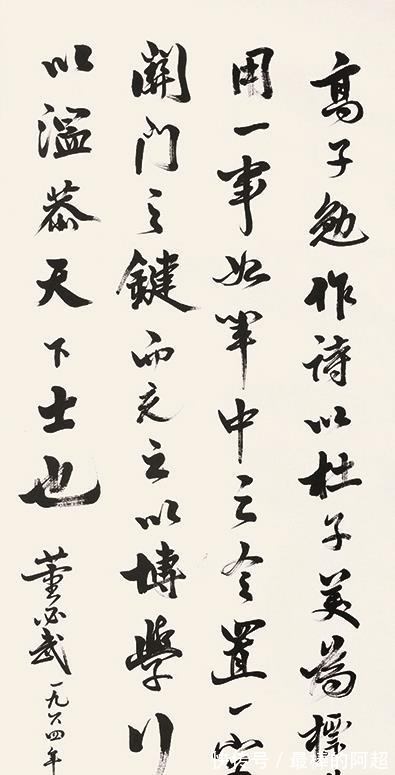 高子勉作詩以杜子美為標
用一事如軍中之令置一字
關門之鍵而充之以博學行
以溫恭天下士也
董必武一九六四年
快传号/最雄的阿超